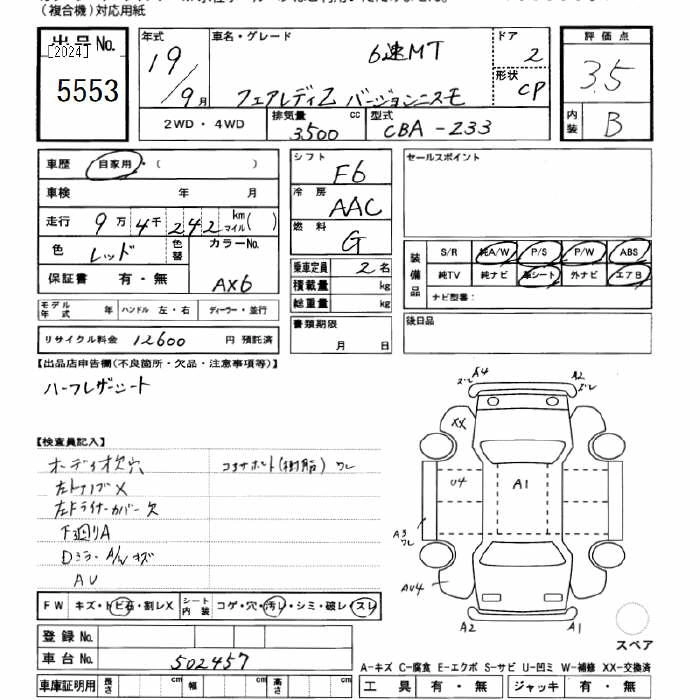 (複合機)対応用紙
出品No.
[2024]
5553
年式
19／9月
車名・グレード
6速MT
フェアレディZ バージョンニスモ
ドア
2
形状
CP
評価点
3.5
内装
B
2WD・4WD
排気量
3500
cc
型式
CBA-Z33
車歴
自家用・( )
車検 年 月
走行 9万4千242 km マイル( )
色 レッド
色替
カラーNo.
AX6
保証書 有・無
モデル年式 年
ハンドル 左・右
ディーラー・並行
リサイクル料金 12600 円 預託済
シフト
F6
冷房
AAC
燃料
G
乗車定員 2名
積載量 kg
総重量 kg
書類期限
月 日
セールスポイント
装備品
S/R 純A/W P/S P/W ABS
純TV 純ナビ 革シート 外ナビ エアB
ナビ型番:
後日品
【出品店申告欄(不良箇所・欠品・注意事項等)】
ハーフレザーシート
【検査員記入】
オーディオ欠穴
コアサポート(樹脂)ワレ
左ドライナーカバー欠
下廻りA
Dミラー A/Wキズ
AU
A4
ズレ
A2
ズレ
XX
U4
A1
A3
ワレ
AU4
A2
A1
スペア
FW キズ・トビ石・割レX
シート内装 コゲ・穴・汚レ・シミ・破レ・スレ
登録No.
車台No. 502457
車庫証明用 長さ cm 幅 cm 高さ cm
A-キズ C-腐食 E-エクボ S-サビ U-凹ミ W-補修 XX-交換済
工具 有・無 ジャッキ 有・無